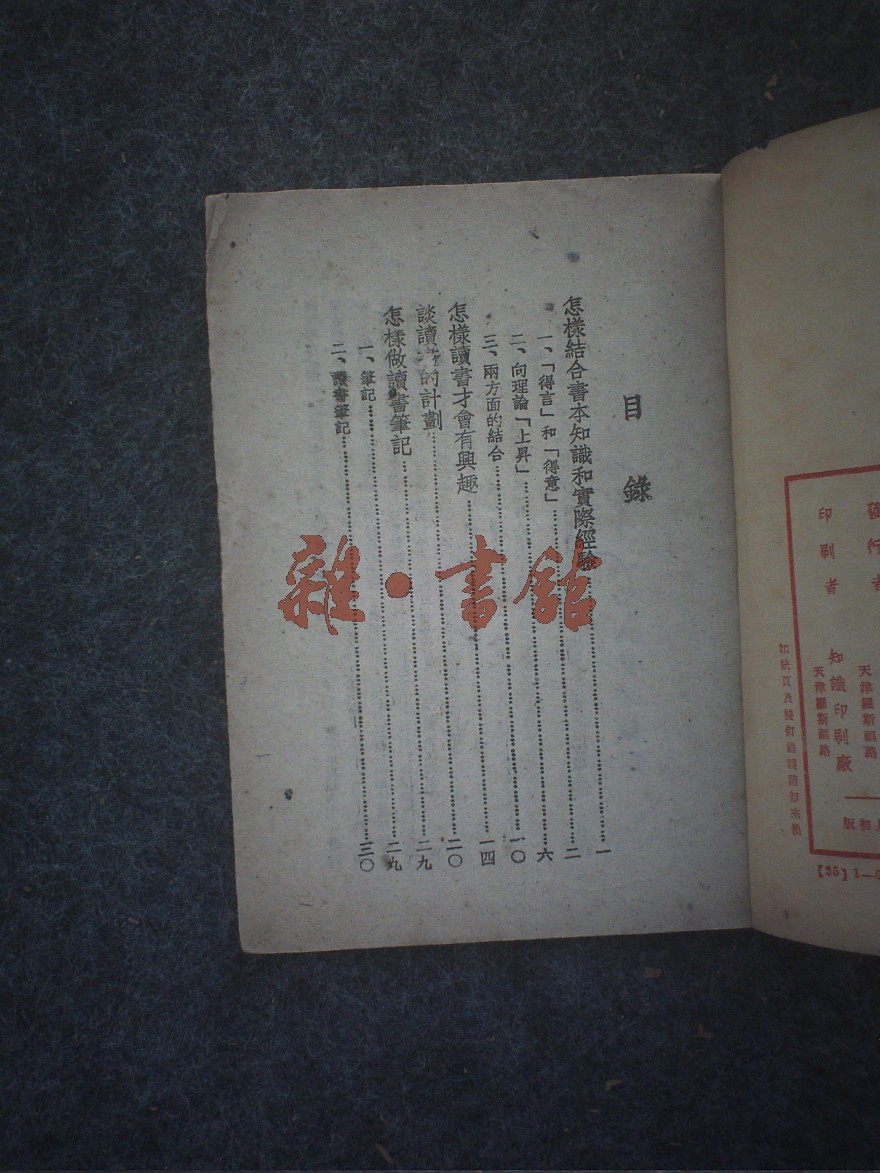 發行者
天津羅斯福路
印刷者
知識印刷廠
天津羅斯福路
初版
【35】1—
目錄
怎樣結合書本知識和實際經驗……一
一、「得言」和「得意」……二
二、向理論「上昇」……六
三、兩方面的結合……一〇
怎樣讀書才會有興趣……一四
談讀 的計劃……二〇
怎樣做讀書筆記……二九
一、筆記……二九
二、讀書筆記……三〇
雜·書館